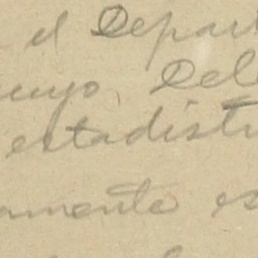 el Depart
cuyo Del
estadist
amente es